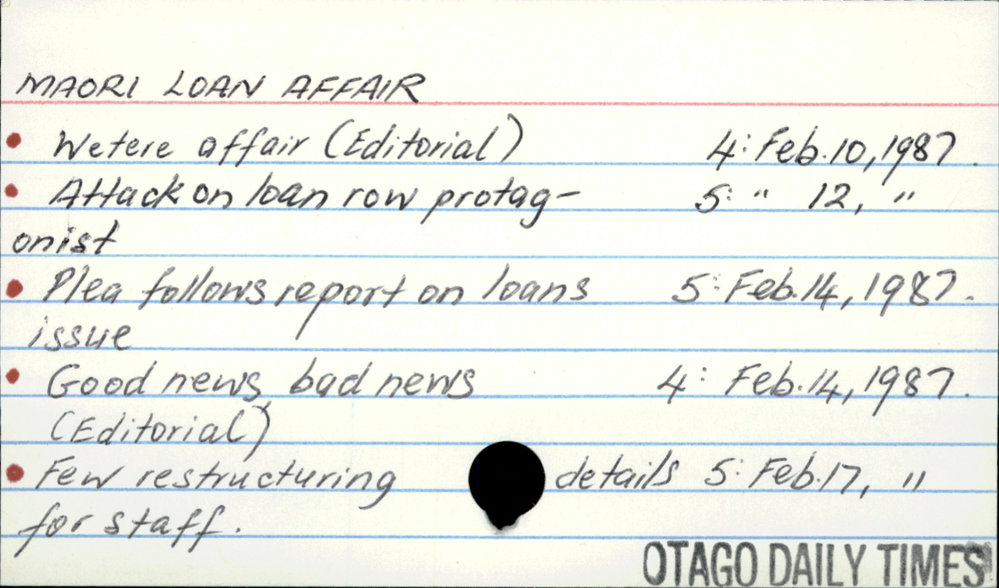 MAORI LOAN AFFAIR
• Wetere affair (Editorial) 4: Feb. 10, 1987.
• Attack on loan row protag- 5: " 12, "
onist
• Plea follows report on loans 5: Feb. 14, 1987.
issue
• Good news, bad news 4: Feb. 14, 1987.
(Editorial)
• Few restructuring details 5: Feb. 17, "
for staff.
OTAGO DAILY TIMES